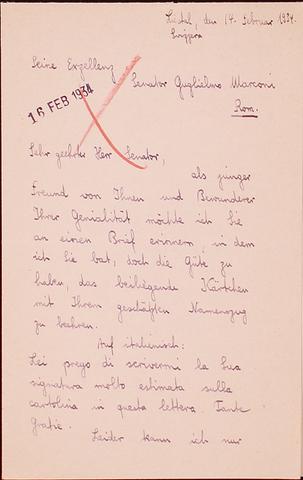 Liestal, den 14. Februar 1934
Svizzera
Seine Exzellenz
Senator Guglielmo Marconi
Rom.
16 FEB 1934
Sehr geehrter Herr Senator,
als junger
Freund von Ihnen und Bewunderer
Ihrer Genialität möchte ich Sie
an einen Brief erinnern, in dem
ich Sie bat, doch die Güte zu
haben, das beiliegende Kärtchen
mit Ihrem geschätzten Namenszug
zu beehren.
Auf italienisch:
Lei prego di scrivermi la Sua
signatura molto estimata sulla
cartolina in questa lettera. Tante
Gratie.
Leider kann ich nur